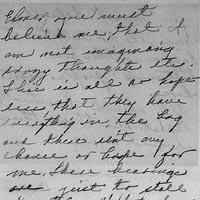 Elmer, you must
believe me, that I
am not imagining
crazy thoughts etc.
This is all no hope
sees that they have
everything in, the bag
and there isn't any
chance or hope for
me, these hearings
are just to stall